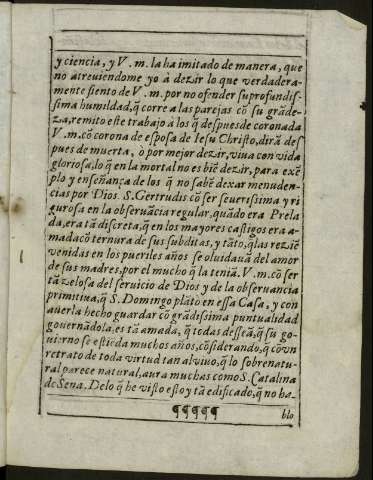 y ciencia, y V. m. la ha imitado de manera, que
no atreuiendome yo à dezir lo que verdadera-
mente siento de V. m. por no ofender su profundis-
sima humildad, q̃ corre a las parejas cõ su grãde-
za, remito este trabajo à los q̃ despues de coronada
V. m. cõ corona de esposa de Iesu Christo, dirã des
pues de muerta, ò por mejor dezir, viua con vida
gloriosa, lo q̃ en la mortal no es biẽ dezir, para exẽ
plo y enseñança de los q̃ no sabẽ dexar menuden-
cias por Dios. S. Gertrudis cõ ser seuerissima y ri
gurosa en la obseruãcia regular, quãdo era Prela
da, era tã discreta, q̃ en los mayores castigos era a-
mada cõ ternura de sus subditas, y tãto, q̃ las reziẽ
venidas en los pueriles años se oluidauã del amor
de sus madres, por el mucho q̃ la teniã. V. m. cõ ser
tã zelosa del seruicio de Dios y de la obseruancia
primitiua, q̃ S. Domingo plãtò en essa Casa, y con
auerla hecho guardar cõ grãdissima puntualidad
gouernãdola, es tã amada, q̃ todas desseã, q̃ su go-
uierno se estiẽda muchos años, cõsiderando, q̃ cõ vn
retrato de toda virtud tan al viuo, q̃ lo sobrenatu-
ral parece natural, aura muchas como S. Catalina
de Sena. De lo q̃ he visto estoy tã edificado, q̃ no ha-
¶¶¶¶¶
blo